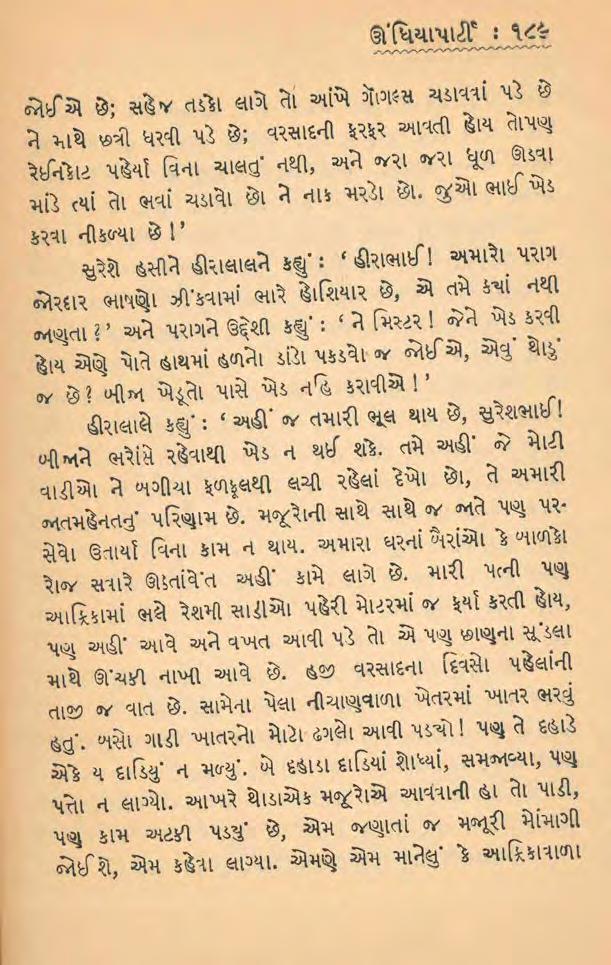 ઊંધિયાપાર્ટી : ૧૮૯
જોઈએ છે; સહેજ તડકો લાગે તો આંખે ગૉગલ્સ ચડાવવાં પડે છે
ને માથે છત્રી ધરવી પડે છે; વરસાદની ફરફર આવતી હોય તોપણ
રેઈનકોટ પહેર્યા વિના ચાલતું નથી, અને જરા જરા ધૂળ ઊડવા
માંડે ત્યાં તો ભવાં ચડાવો છો ને નાક મરડો છો. જુઓ ભાઈ ખેડ
કરવા નીકળ્યા છે !’
સુરેશે હસીને હીરાલાલને કહ્યું : ‘ હીરાભાઈ! અમારો પરાગ
જોરદાર ભાષણો ઝીંકવામાં ભારે હોશિયાર છે, એ તમે ક્યાં નથી
જાણતા ?’ અને પરાગને ઉદ્દેશી કહ્યું : ‘ ને મિસ્ટર ! જેને ખેડ કરવી
હોય એણે પોતે હાથમાં હળનો ડાંડો પકડવો જ જોઈએ, એવું થોડું
જ છે ? બીજા ખેડૂતો પાસે ખેડ નહિ કરાવીએ !’
હીરાલાલે કહ્યું : ‘ અહીં જ તમારી ભૂલ થાય છે, સુરેશભાઈ!
બીજાને ભરોંસે રહેવાથી ખેડ ન થઈ શકે. તમે અહીં જે મોટી
વાડીઓ ને બગીચા ફળફૂલથી લચી રહેલાં દેખો છો, તે અમારી
જાતમહેનતનું પરિણામ છે. મજૂરોની સાથે સાથે જ જાતે પણ પર-
સેવો ઉતાર્યા વિના કામ ન થાય. અમારા ઘરનાં બૈરાંઓ કે બાળકો
રોજ સવારે ઊઠતાંવેંત અહીં કામે લાગે છે. મારી પત્ની પણ
આફ્રિકામાં ભલે રેશમી સાડીઓ પહેરી મોટરમાં જ ફર્યા કરતી હોય,
પણ અહીં આવે અને વખત આવી પડે તો એ પણ છાણના સૂંડલા
માથે ઊંચકી નાખી આવે છે. હજી વરસાદના દિવસો પહેલાંની
તાજી જ વાત છે. સામેના પેલા નીચાણવાળા ખેતરમાં ખાતર ભરવું
હતું. બસો ગાડી ખાતરનો મોટો ઢગલો આવી પડ્યો ! પણ તે દહાડે
એકે ય દાડિયું ન મળ્યું. બે દહાડા દાડિયાં શોધ્યાં, સમજાવ્યા, પણ
પત્તો ન લાગ્યો. આખરે થોડાએક મજૂરોએ આવવાની હા તો પાડી,
પણ કામ અટકી પડ્યું છે, એમ જણાતાં જ મજૂરી મોંમાગી
જોઈશે, એમ કહેવા લાગ્યા. એમણે એમ માનેલું કે આફ્રિકાવાળા